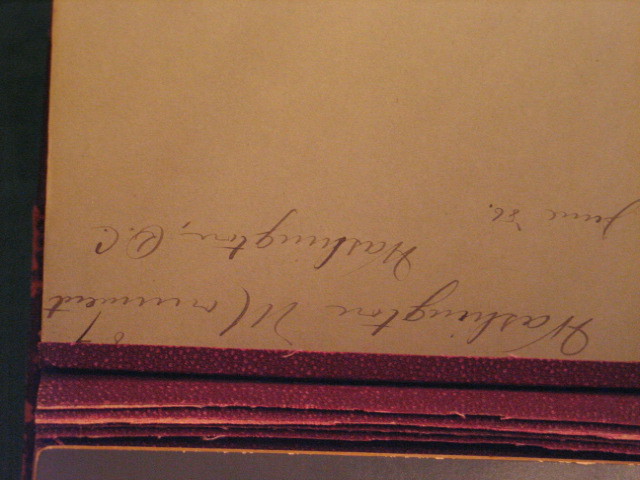 87
Washington Monument
Washington, D.C.
June '86.